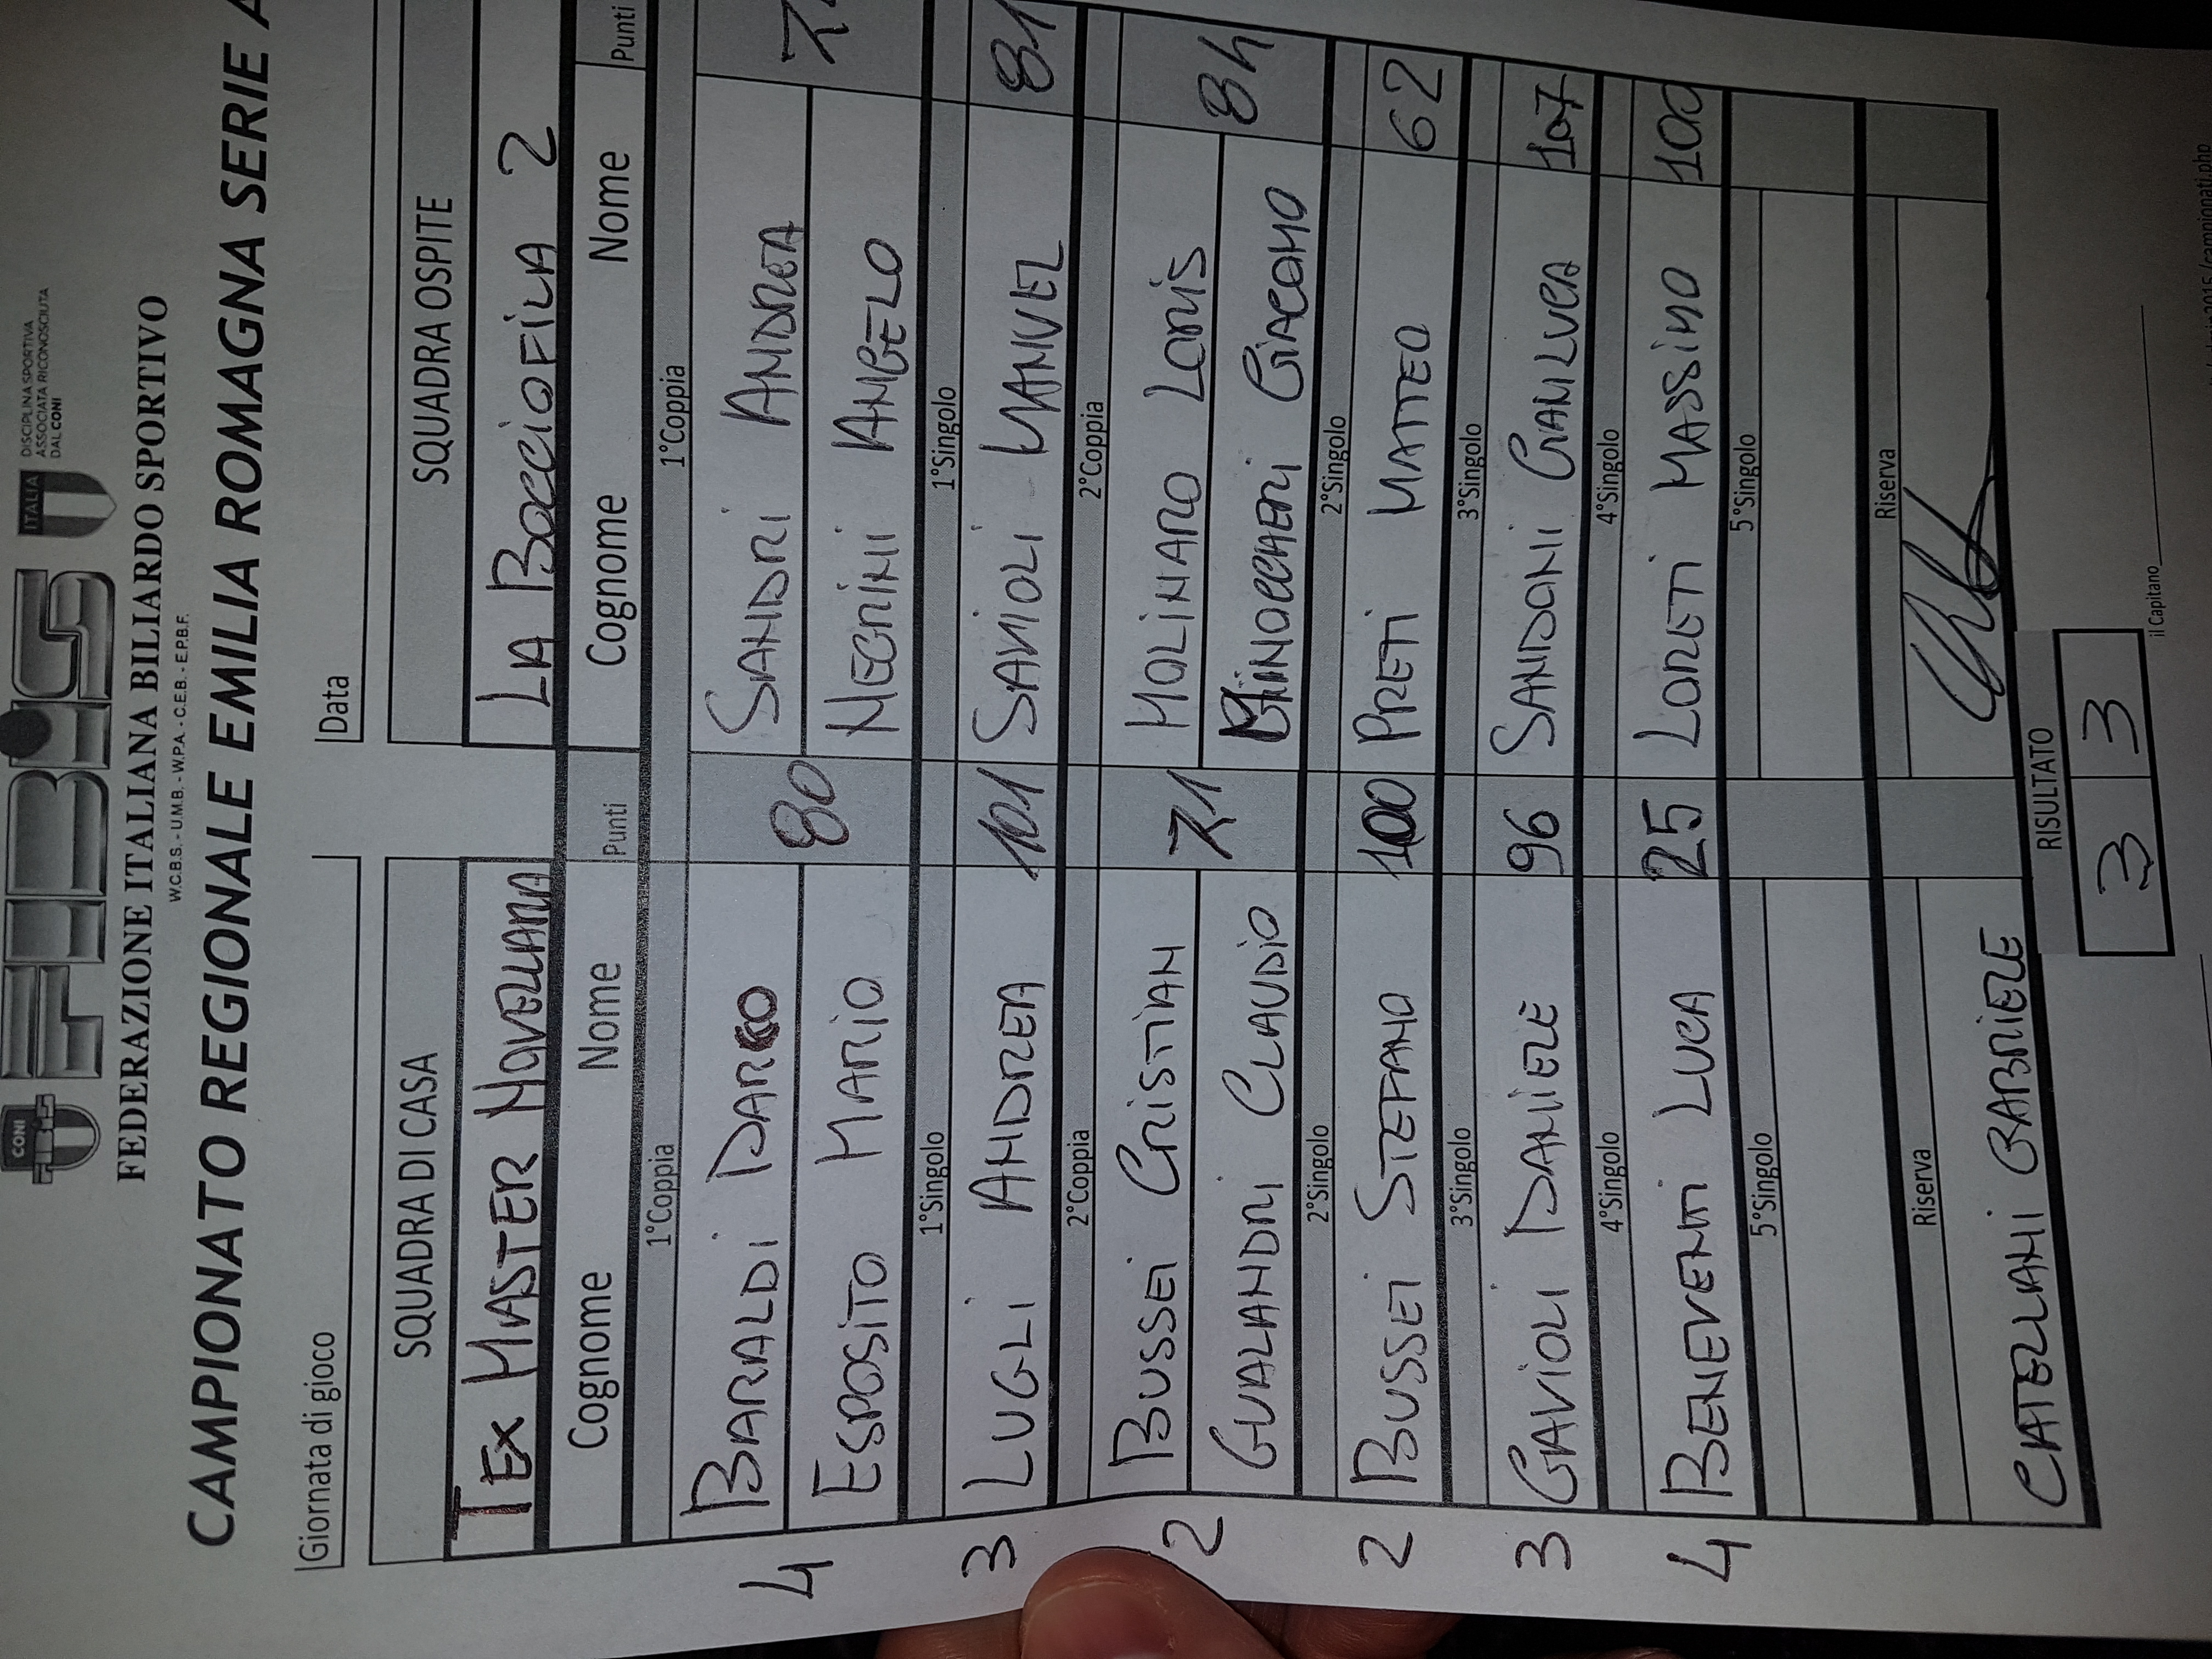 CONI
FIBiS
ITALIA
DISCIPLINA SPORTIVA
ASSOCIATA RICONOSCIUTA
DAL CONI
FEDERAZIONE ITALIANA BILIARDO SPORTIVO
W.C.B.S. - U.M.B. - W.P.A. - C.E.B. - E.P.B.F.
CAMPIONATO REGIONALE EMILIA ROMAGNA SERIE A
Giornata di gioco Data
SQUADRA DI CASA SQUADRA OSPITE
TEX MASTER NOVELLARA LA BOCCIOFILA 2
Cognome Nome Punti Cognome Nome Punti
1°Coppia 1°Coppia
4 BARALDI 80 SANDRI ANDREA
ESPOSITO MARIO NEGRINI ANGELO
1°Singolo 1°Singolo
3 LUGLI ANDREA 101 SAVIOLI MANUEL 81
2°Coppia 2°Coppia
2 BUSSEI CRISTIAN 71 MOLINARO LORIS 84
GUALANDRI CLAUDIO GIACOMO
2°Singolo 2°Singolo
2 BUSSEI STEFANO 100 PRETI MATTEO 62
3°Singolo 3°Singolo
3 GAVIOLI DANIELE 96 SANDONI GIANLUCA 107
4°Singolo 4°Singolo
4 BENEVENTI LUCA 25 LORETI MASSIMO 100
5°Singolo 5°Singolo
Riserva Riserva
CATELLANI GABRIELE
RISULTATO
3 3
il Capitano